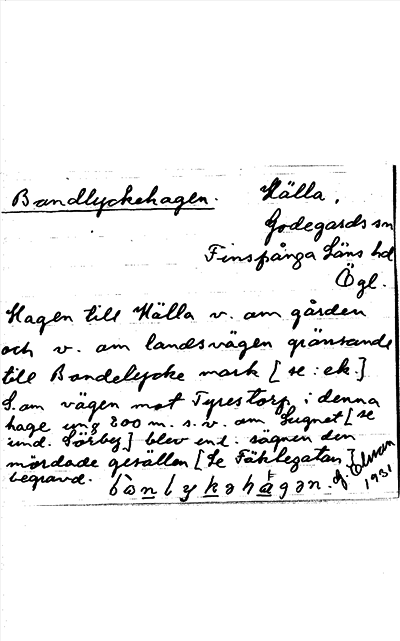 Bandlyckehagen. Hälla,
Godegards sn
Finspånga Läns hd
Ögl.
Hagen till Hälla v. om gården
och v. om landsvägen gränsande
till Bandelycke mark [se: ek.]
S.om vägen mot Tyrestorp i denna
hage ung 200 m. s.v. om Lugnet [se
und. Sörby] blev enl. sägnen den
mördade gesällen [Se Fäktegatan]
begravd.
bànlykəhágən. G. Elman
1931